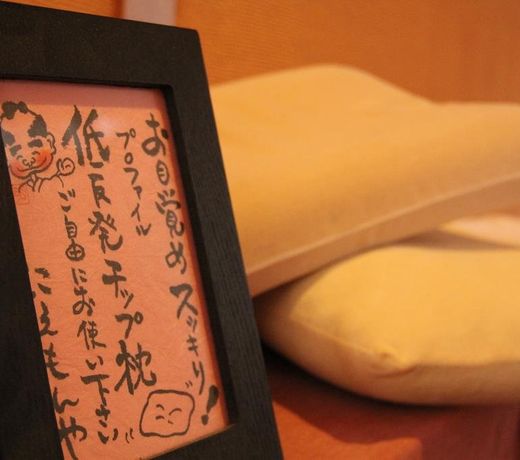 お目覚めスッキリ!
プロファイル
低反発チップ枕
ご自由にお使い下さい
こえもんや